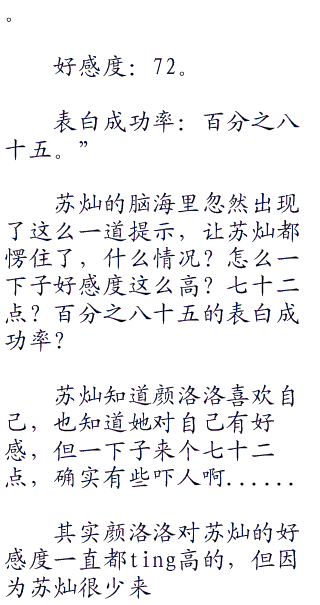 。
好感度：72。
表白成功率：百分之八
十五。”
苏灿的脑海里忽然出现
了这么一道提示，让苏灿都
愣住了，什么情况？怎么一
下子好感度这么高？七十二
点？百分之八十五的表白成
功率？
苏灿知道颜洛洛喜欢自
己，也知道她对自己有好
感，但一下子来个七十二
点，确实有些吓人啊......
其实颜洛洛对苏灿的好
感度一直都ting高的，但因
为苏灿很少来